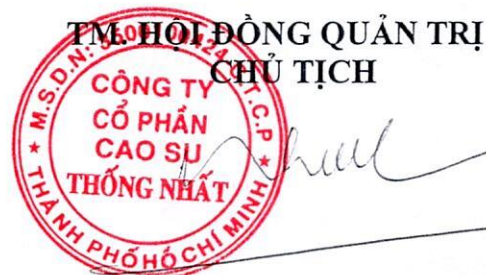 TM. HỘI ĐỒNG QUẢN TRỊ
CHỦ TỊCH
CÔNG TY
CỔ PHẦN
CAO SU
THỐNG NHẤT
THÀNH PHỐ HỒ CHÍ MINH